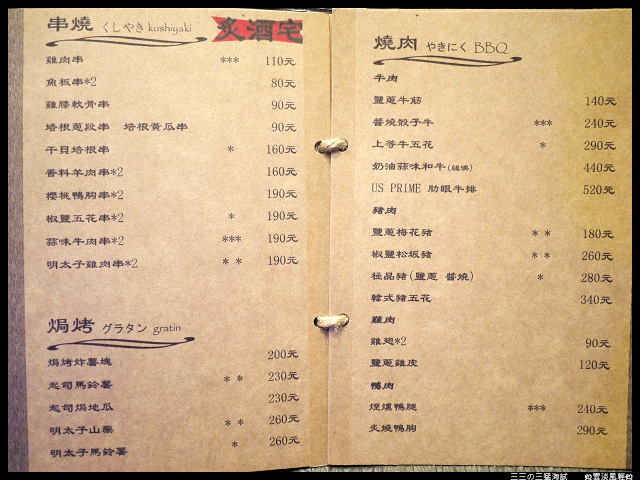 串燒 くしやき kushiyaki
炙酒宅
雞肉串 *** 110元
魚板串*2 80元
雞膝軟骨串 90元
培根蔥段串 培根黃瓜串 90元
干貝培根串 * 160元
香料羊肉串*2 160元
櫻桃鴨胸串*2 190元
椒鹽五花串*2 * 190元
蒜味牛肉串*2 *** 190元
明太子雞肉串*2 * * 190元
焗烤 グラタン gratin
焗烤炸薯塊 200元
起司馬鈴薯 * * 230元
起司焗地瓜 230元
明太子山藥 * * 260元
明太子馬鈴薯 * 260元
燒肉 やきにく BBQ
牛肉
鹽蔥牛筋 140元
醬燒骰子牛 *** 240元
上等牛五花 * 290元
奶油蒜味和牛(紐澳) 440元
US PRIME 肋眼牛排 520元
豬肉
鹽蔥梅花豬 * * 180元
椒鹽松坂豬 * * 260元
極品豬(鹽蔥 醬燒) * 280元
韓式豬五花 340元
雞肉
雞翅*2 90元
鹽蔥雞皮 120元
鴨肉
煙燻鴨腿 *** 240元
炙燒鴨胸 290元
三三の三猛海賊